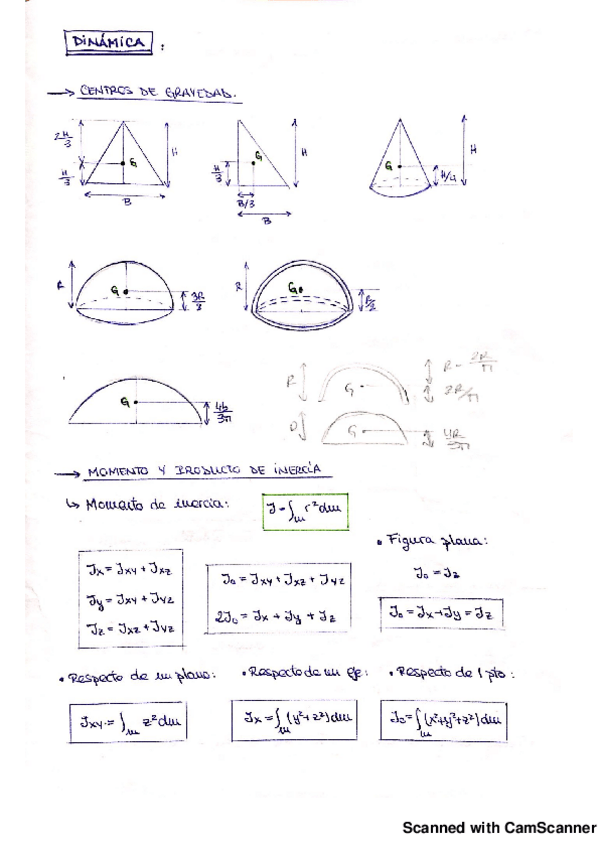 DINÁMICA :
→ CENTROS DE GRAVEDAD.
2H/3 H/3 G H B
H/3 G H B/3 B
G H H/4
R G 3R/8
R G R/2
G 4b/3π
R G R - 2R/π 2R/π
G 4R/3π
→ MOMENTO Y PRODUCTO DE INERCIA
↳ Momento de inercia: J = ∫m r² dm
• Figura plana:
Jx = Jxy + Jxz
Jy = Jxy + Jyz
Jz = Jxz + Jyz
J0 = Jxy + Jxz + Jyz
2J0 = Jx + Jy + Jz
J0 = Jz
J0 = Jx + Jy = Jz
• Respecto de un plano: • Respecto de un eje: • Respecto de 1 pto:
Jxy = ∫m z² dm Jx = ∫m (y² + z²) dm J0 = ∫m (x² + y² + z²) dm
Scanned with CamScanner